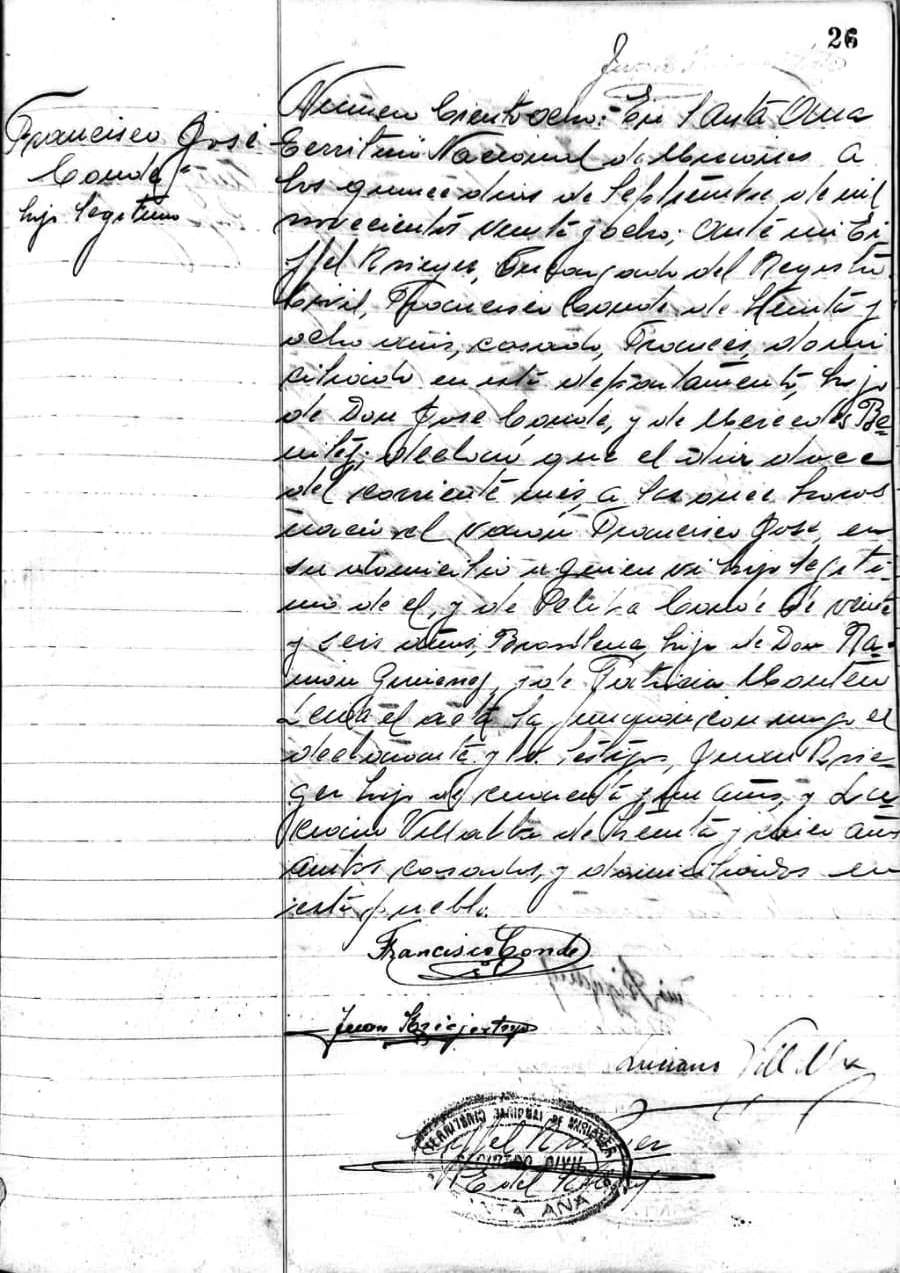 26
Francisco José
Conde
hijo legitimo
Número Cientoocho: En Santa Ana
Territorio Nacional de Misiones a
los quince dias de Septiembre de mil
novecientos veinte y ocho; ante mi Ei
ffel Krieger, Encargado del Registro
Civil, Francisco Conde de treinta y
ocho años, casado, Frances, domi
ciliado en este departamento, hijo
de Don José Conde, y de Mercedes Be=
nitez; declaró que el dia doce
del corriente mes, a las once horas
nació el varón Francisco José, en
su domicilio a quien vi hijo legiti
mo de el, y de Conde de veinte
y seis años, Brasilena, hija de Don Ra=
mon Gimenez, y de Patricia Monten
Leida el acta la firmaron conmigo el
declarante y los testigos, Juan Krie=
ger hijo de cincuenta y un años, y Lu=
ciano Villalba de treinta y años
ambos casados, y domiciliados en
este pueblo.
Francisco Conde
Juan Krieger hijo
Luciano Villalba
TERRITORIO NACIONAL DE MISIONES
Eiffel Krieger
REGISTRO CIVIL
E. del R.
SANTA ANA